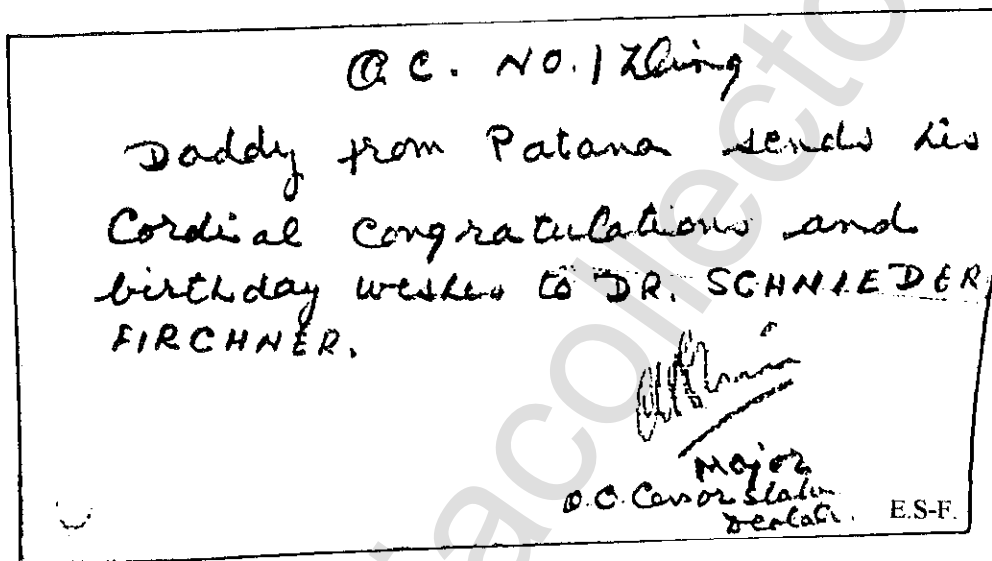 O.C. NO.1 Wing
Daddy from Patana sends his
Cordial congratulations and
birthday wishes to DR. SCHNIEDER
FIRCHNER.
Major
O.C. Censor Station
E.S-F.